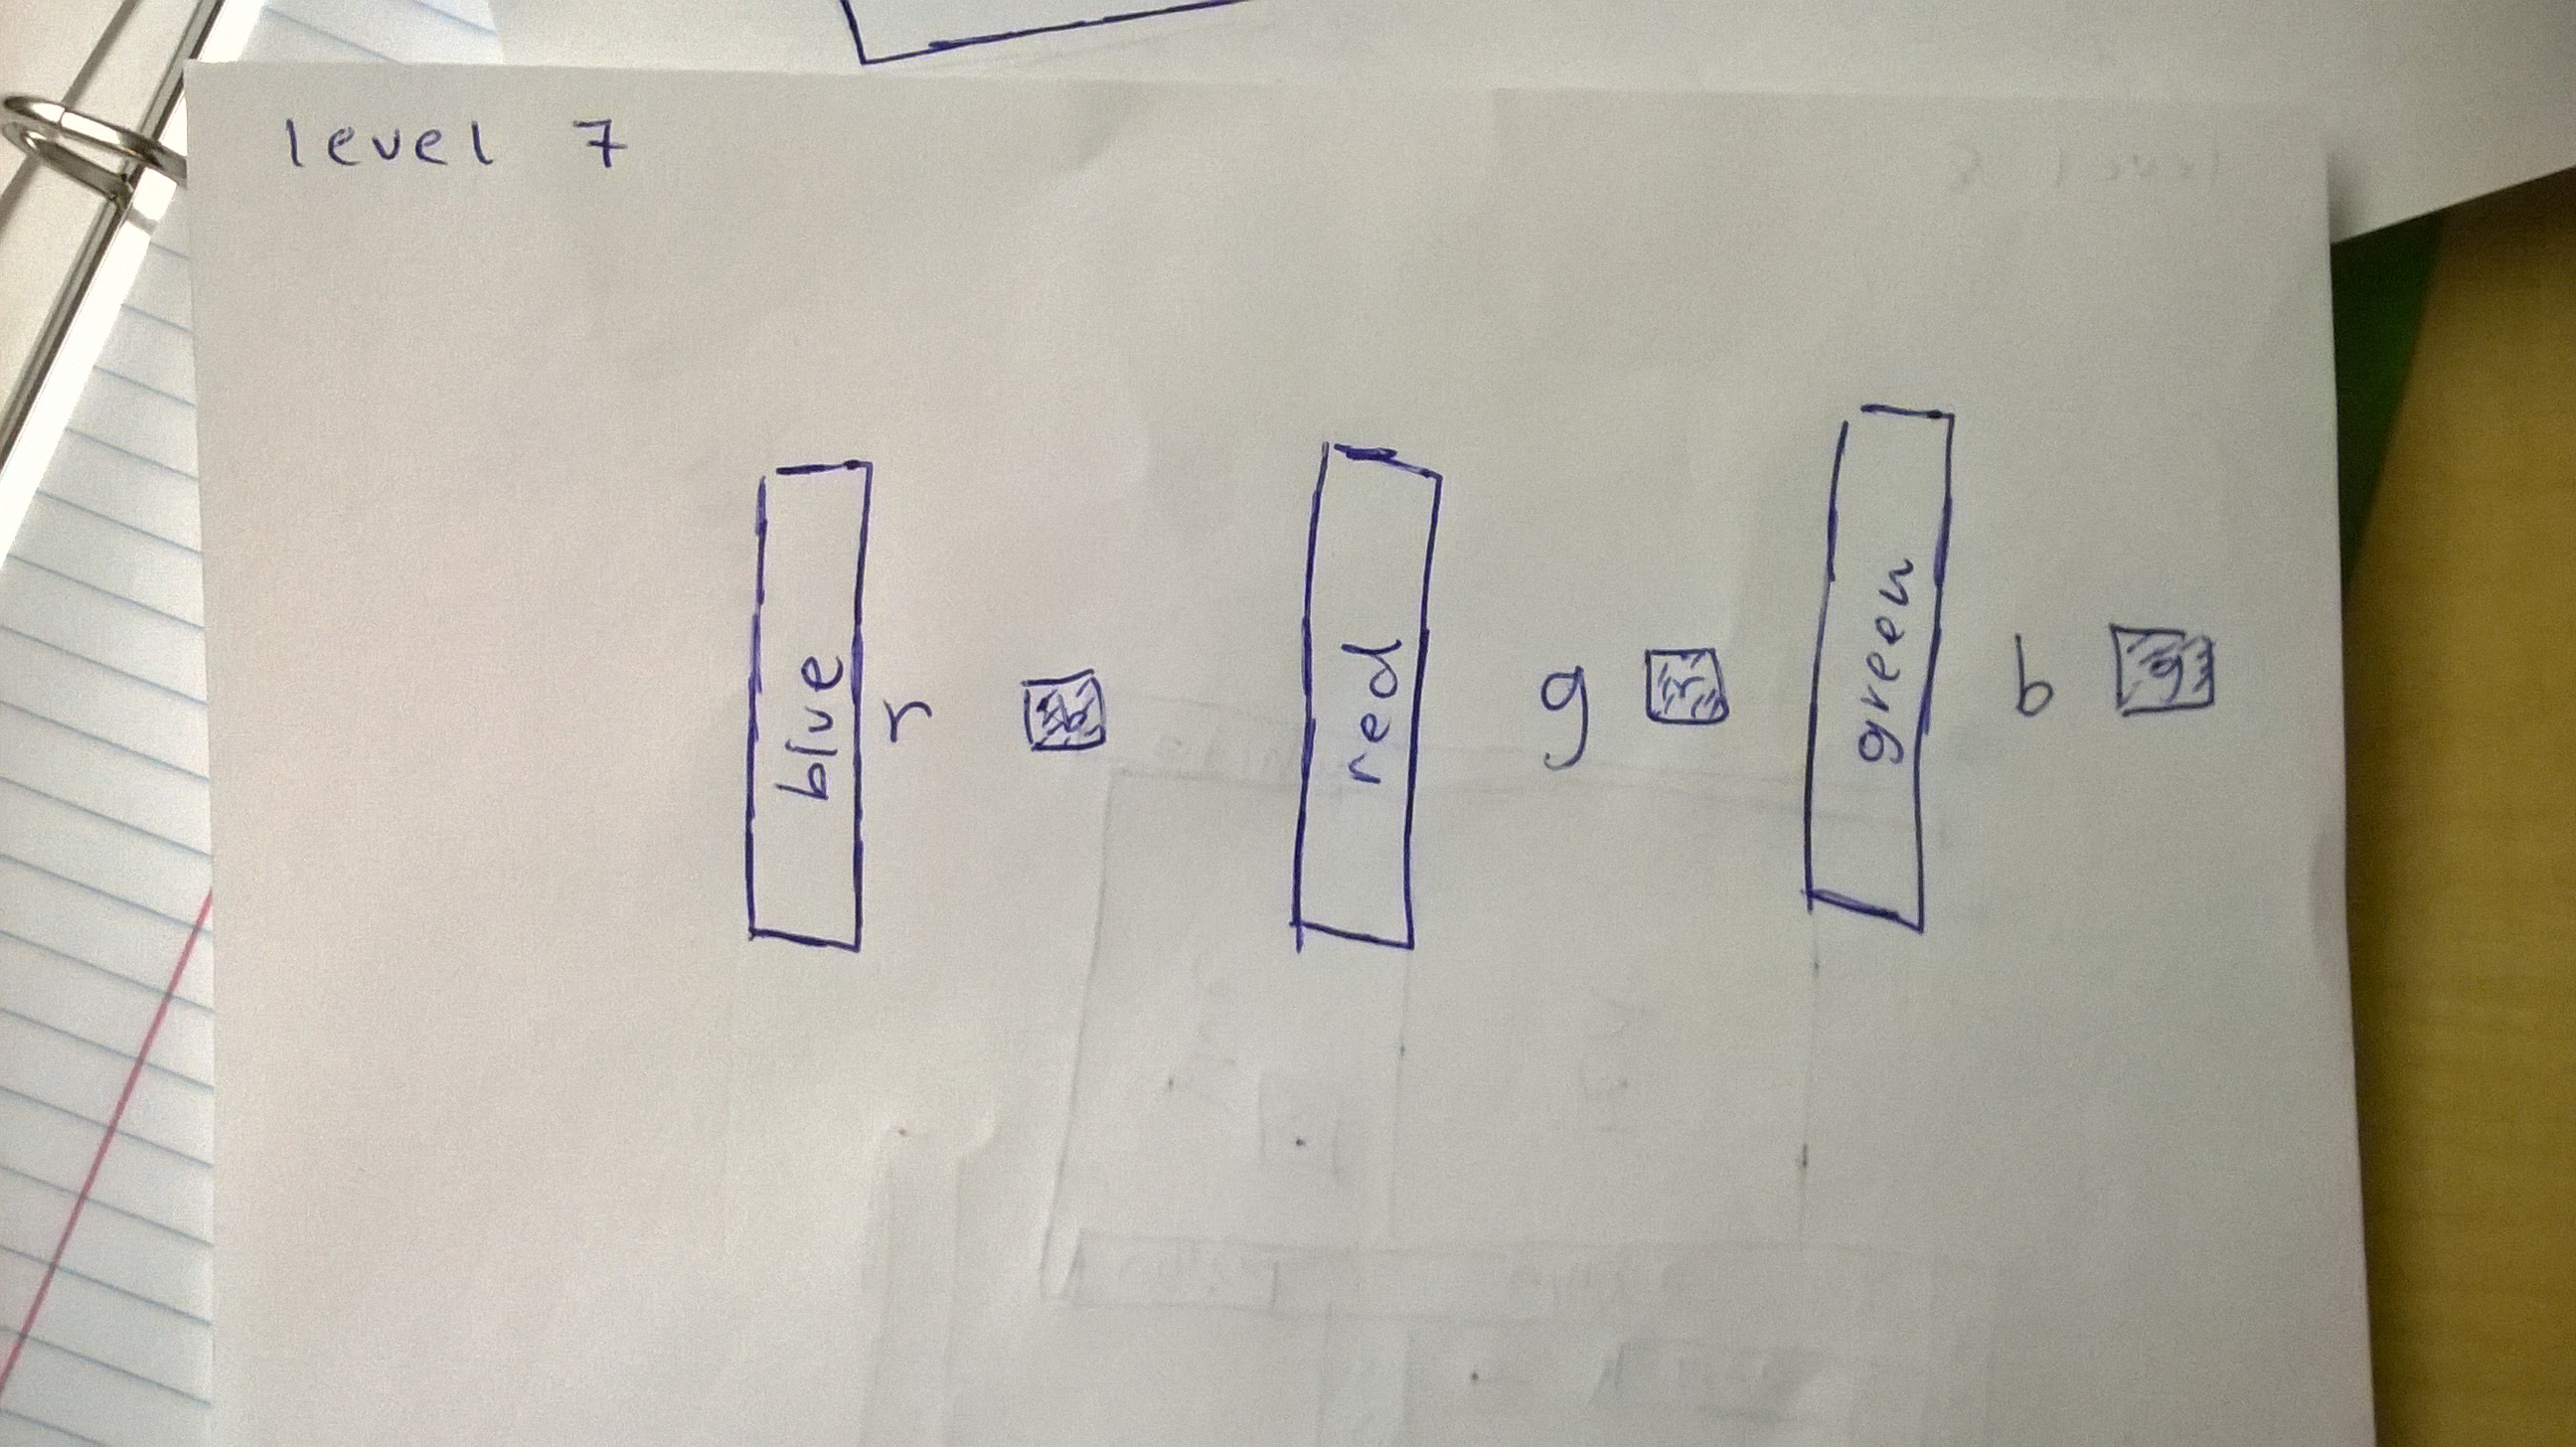 level 7
blue
r
b
red
g
r
green
b
g